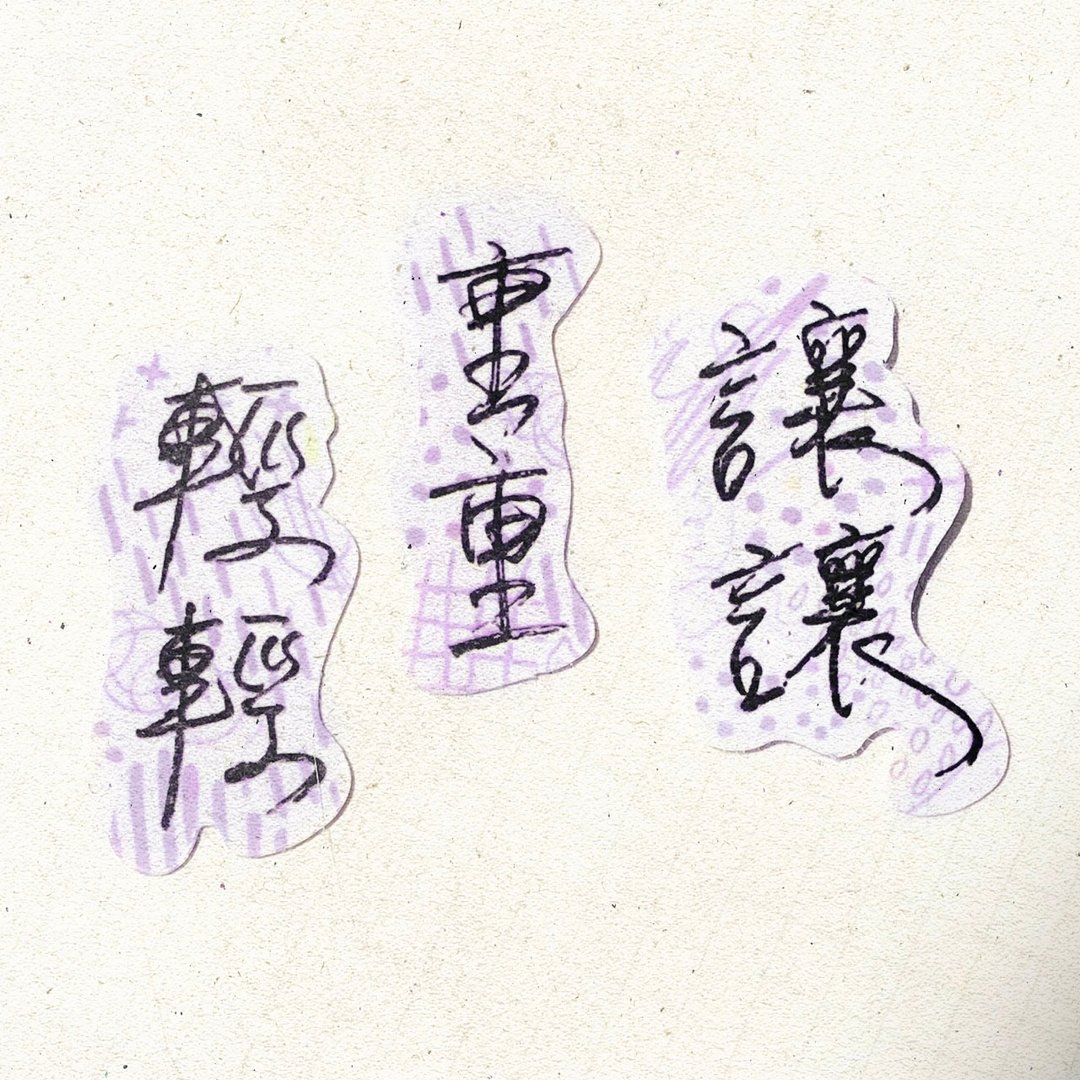 輕輕
重重
讓讓